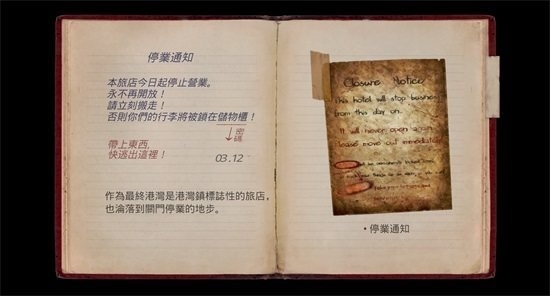 停業通知
本旅店今日起停止營業。
永不再開放！
請立刻搬走！
否則你們的行李將被鎖在儲物櫃！
密碼
03.12
帶上東西,
快逃出這裡！
作為最終港灣是港灣鎮標誌性的旅店,
也淪落到關門停業的地步。
Closure Notice
This hotel will stop business
from this day on.
It will never open again
Please move out immediately
• 停業通知